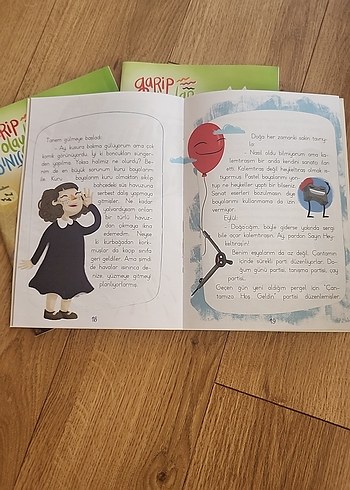 GARİP
GARİP
olay
Tanem gülmeye başladı.
- Ay, kusura bakma gülüyorum ama çok
komik görünüyordu. İyi ki boncukları sünger-
den yapılmış. Yoksa halimiz ne olurdu? Be-
nim de en büyük sorunum kuru boyaların
ile. Kuru boyalarım kuru olmaktan sıkılıp
bahçedeki süs havuzuna
serbest dalış yapmaya
gitmişler. Ne kadar
yalvardıysam onları
bir türlü havuz-
dan çıkmaya ikna
edemedim. Neyse
ki kurbağadan kork-
muşlar da kaçıp sınıfa
geri geldiler. Ama şimdi
de havalar ısınınca de-
nize, yüzmeye gitmeyi
planlıyorlarmış.
18
Doğa her zamanki sakin tavrıy-
la:
- Nasıl oldu bilmiyorum ama ka-
lemtıraşım bir anda kendini sanata adam
etti. Kalemtıraş değil heykeltıraş olmak is-
tiyormuş. Pastel boyalarımı yon-
tup ne heykeller yaptı bir bilseniz.
Sanat eserleri bozulmasın diye
boyalarımı kullanmama da izin
vermiyor.
Eylül:
- Doğacığım, böyle giderse yakında sergi
bile açar kalemtıraşın. Ay, pardon Sayın Hey-
keltıraşın!
Benim eşyalarım da az değil. Çantamın
içinde sürekli parti düzenliyorlar. Do-
ğum günü partisi, tanışma partisi, çay
partisi...
Geçen gün yeni aldığım pergel için "Çan-
tamıza Hoş Geldin" partisi düzenlemişler.
19